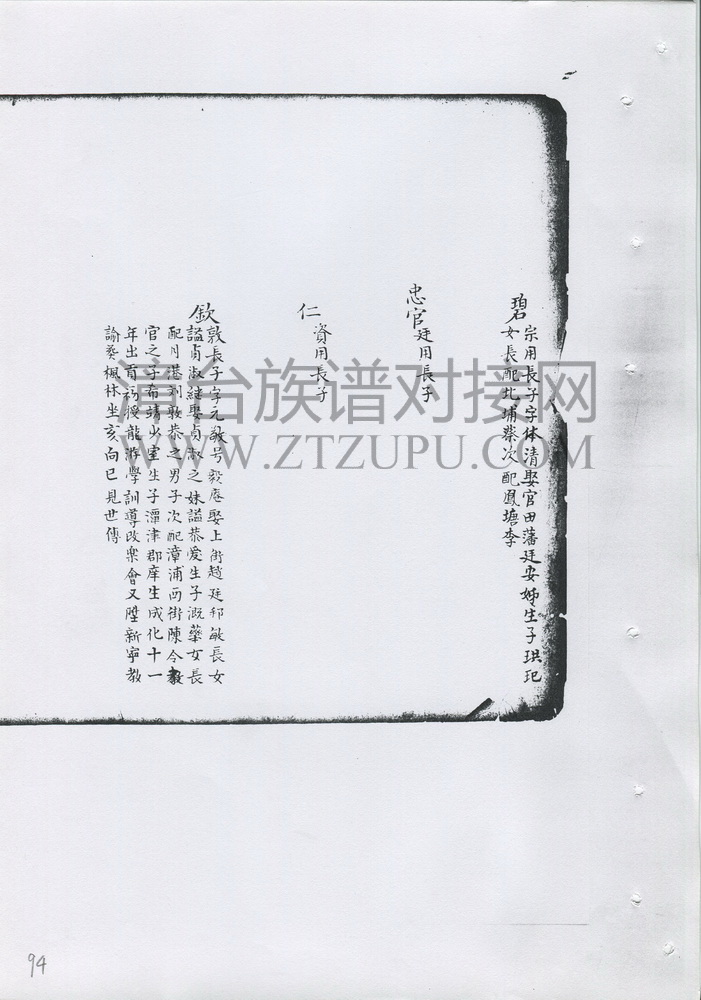 碧
宗用長子字休清娶官田藩廷安姊生子珙玘
女長配北埔蔡次配鳳塘李
忠官廷用長子
仁資用長子
欽
敦長子字元敬号毅庵娶上街趙廷邦敏長女
謚貞淑継娶貞淑之妹謚恭爱生子溉蘂女長
配月港刘敦恭之男子次配漳浦西街陳令毅
官之子希靖少室生子潭津郡庠生成化十一
年出貢初授龍游學訓導改樂會又陞新寧教
諭葵楓林坐亥向巳見世傳
滇台族谱对接网
WWW.ZTZUPU.COM
94